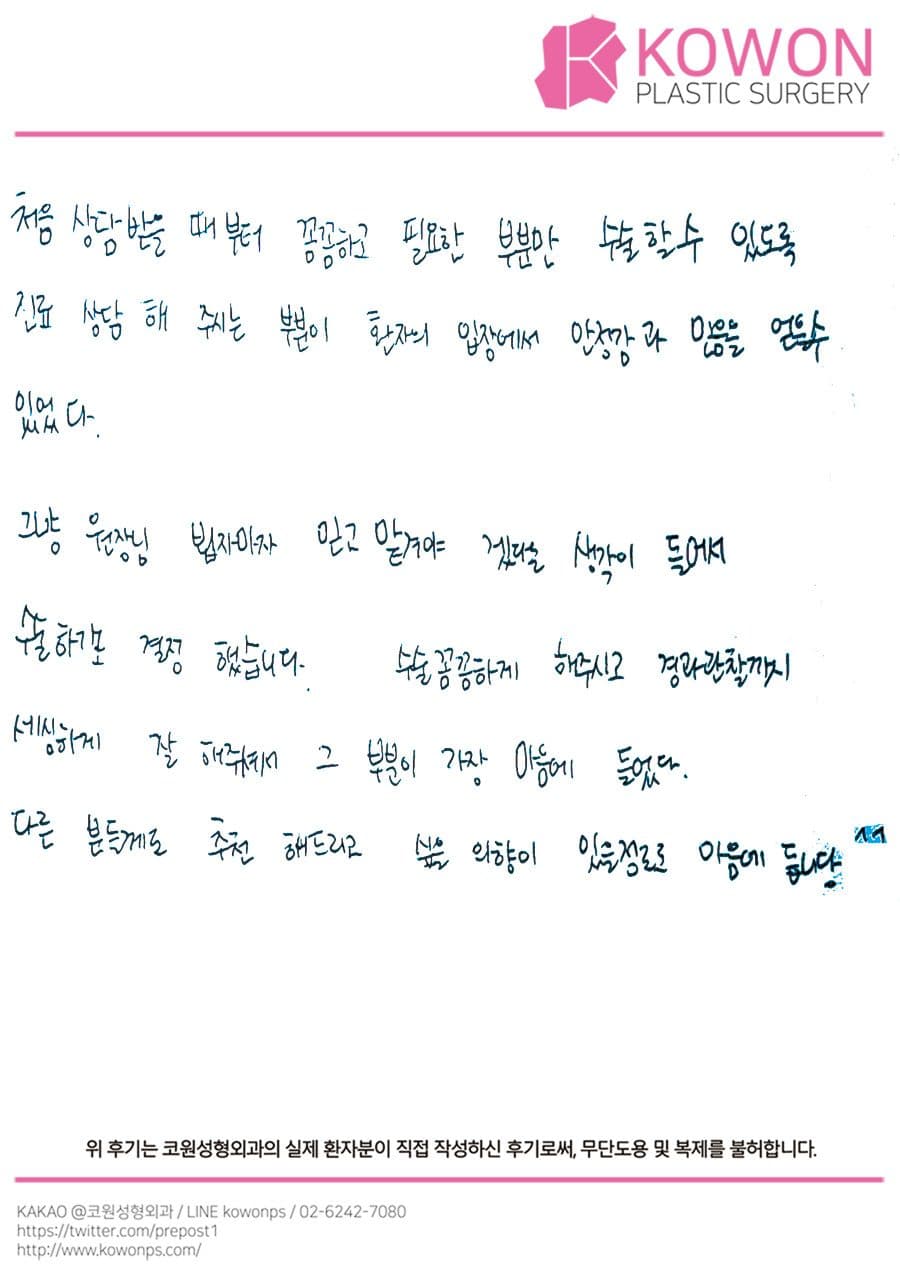 KOWON
PLASTIC SURGERY
처음 상담받을 때부터 꼼꼼하고 필요한 부분만 수술할수 있도록
진료 상담 해 주시는 부분이 환자의 입장에서 안정감과 믿음을 얻을수
있었다.
그냥 원장님 뵙자마자 믿고 맡겨야 겠다는 생각이 들어서
수술하기로 결정 했습니다. 수술꼼꼼하게 해주시고 경과관찰까지
세심하게 잘 해주셔서 그 부분이 가장 마음에 들었다.
다른 분들께도 추천 해드리고 싶은 의향이 있을정도로 마음에 듭니다.^^
위 후기는 코원성형외과의 실제 환자분이 직접 작성하신 후기로써, 무단도용 및 복제를 불허합니다.
KAKAO @코원성형외과 / LINE kowonps / 02-6242-7080
https://twitter.com/prepost1
http://www.kowonps.com/